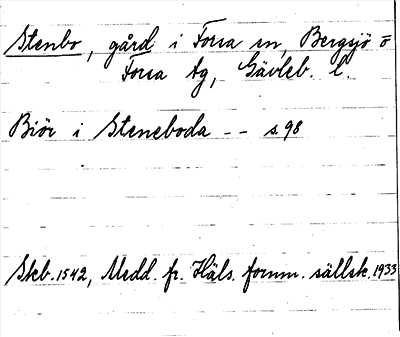 Stenbo, gård i Forsa sn, Bergsjö o
Forsa tg, Gävleb. l.
Biör i Steneboda -- s. 98
Skb. 1542, Medd. fr. Häls. fornm. sällsk. 1933